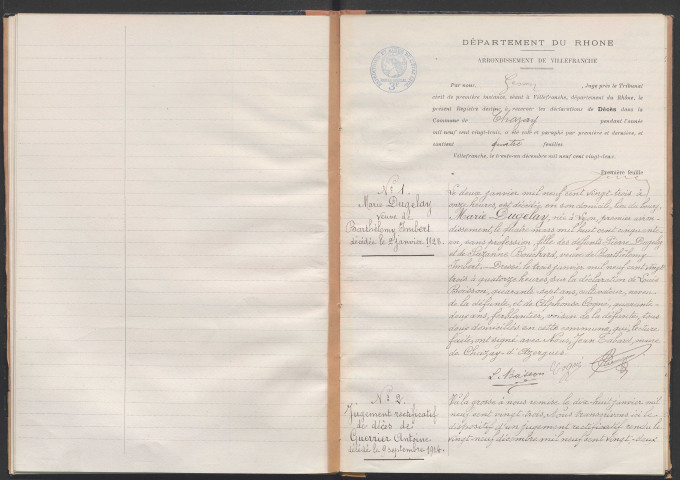 DÉPARTEMENT DU RHONE
ARRONDISSEMENT DE VILLEFRANCHE
Par nous, , Juge près le Tribunal
civil de première instance, séant à Villefranche, département du Rhône, le
présent Registre destiné à recevoir les déclarations de Décès dans la
Commune de Chazay pendant l'année
mil neuf cent vingt-trois, a été coté et paraphé par première et dernière, et
contient quatre feuilles.
Villefranche, le trente-un décembre mil neuf cent vingt-deux.
Première feuille
N° 1.
Marie Dugelay
veuve de
Barthélemy Imbert
décédée le 2 janvier 1923.
Le deux janvier mil neuf cent vingt trois à
onze heures, est décédée en son domicile, lieu du bourg,
Marie Dugelay, née à Lyon, premier arron-
dissement, le quatre mars mil huit cent cinquante
un, sans profession, fille des défunts Pierre Dugelay
et de Suzanne Bouchard, veuve de Barthélemy
Imbert. Dressé le trois janvier mil neuf cent vingt
trois à quatorze heures, sur la déclaration de Louis
Boisson, quarante sept ans, cultivateur, neveu
de la défunte, et de Alphonse Cogne, quarante
deux ans, ferblantier, voisin de la défunte, tous
deux domiciliés en cette commune, qui, lecture
faite, ont signé avec Nous, Jean Taboret, maire
de Chazay-d'Azergues.
N° 2.
Jugement rectificatif
de décès de
Guerrier Antoine
décédé le 9 septembre 1914.
Vu la grosse à nous remise le dix-huit janvier mil
neuf cent vingt trois, Nous transcrivons ici le
dispositif d'un jugement rectificatif rendu le
vingt-neuf décembre mil neuf cent vingt-deux